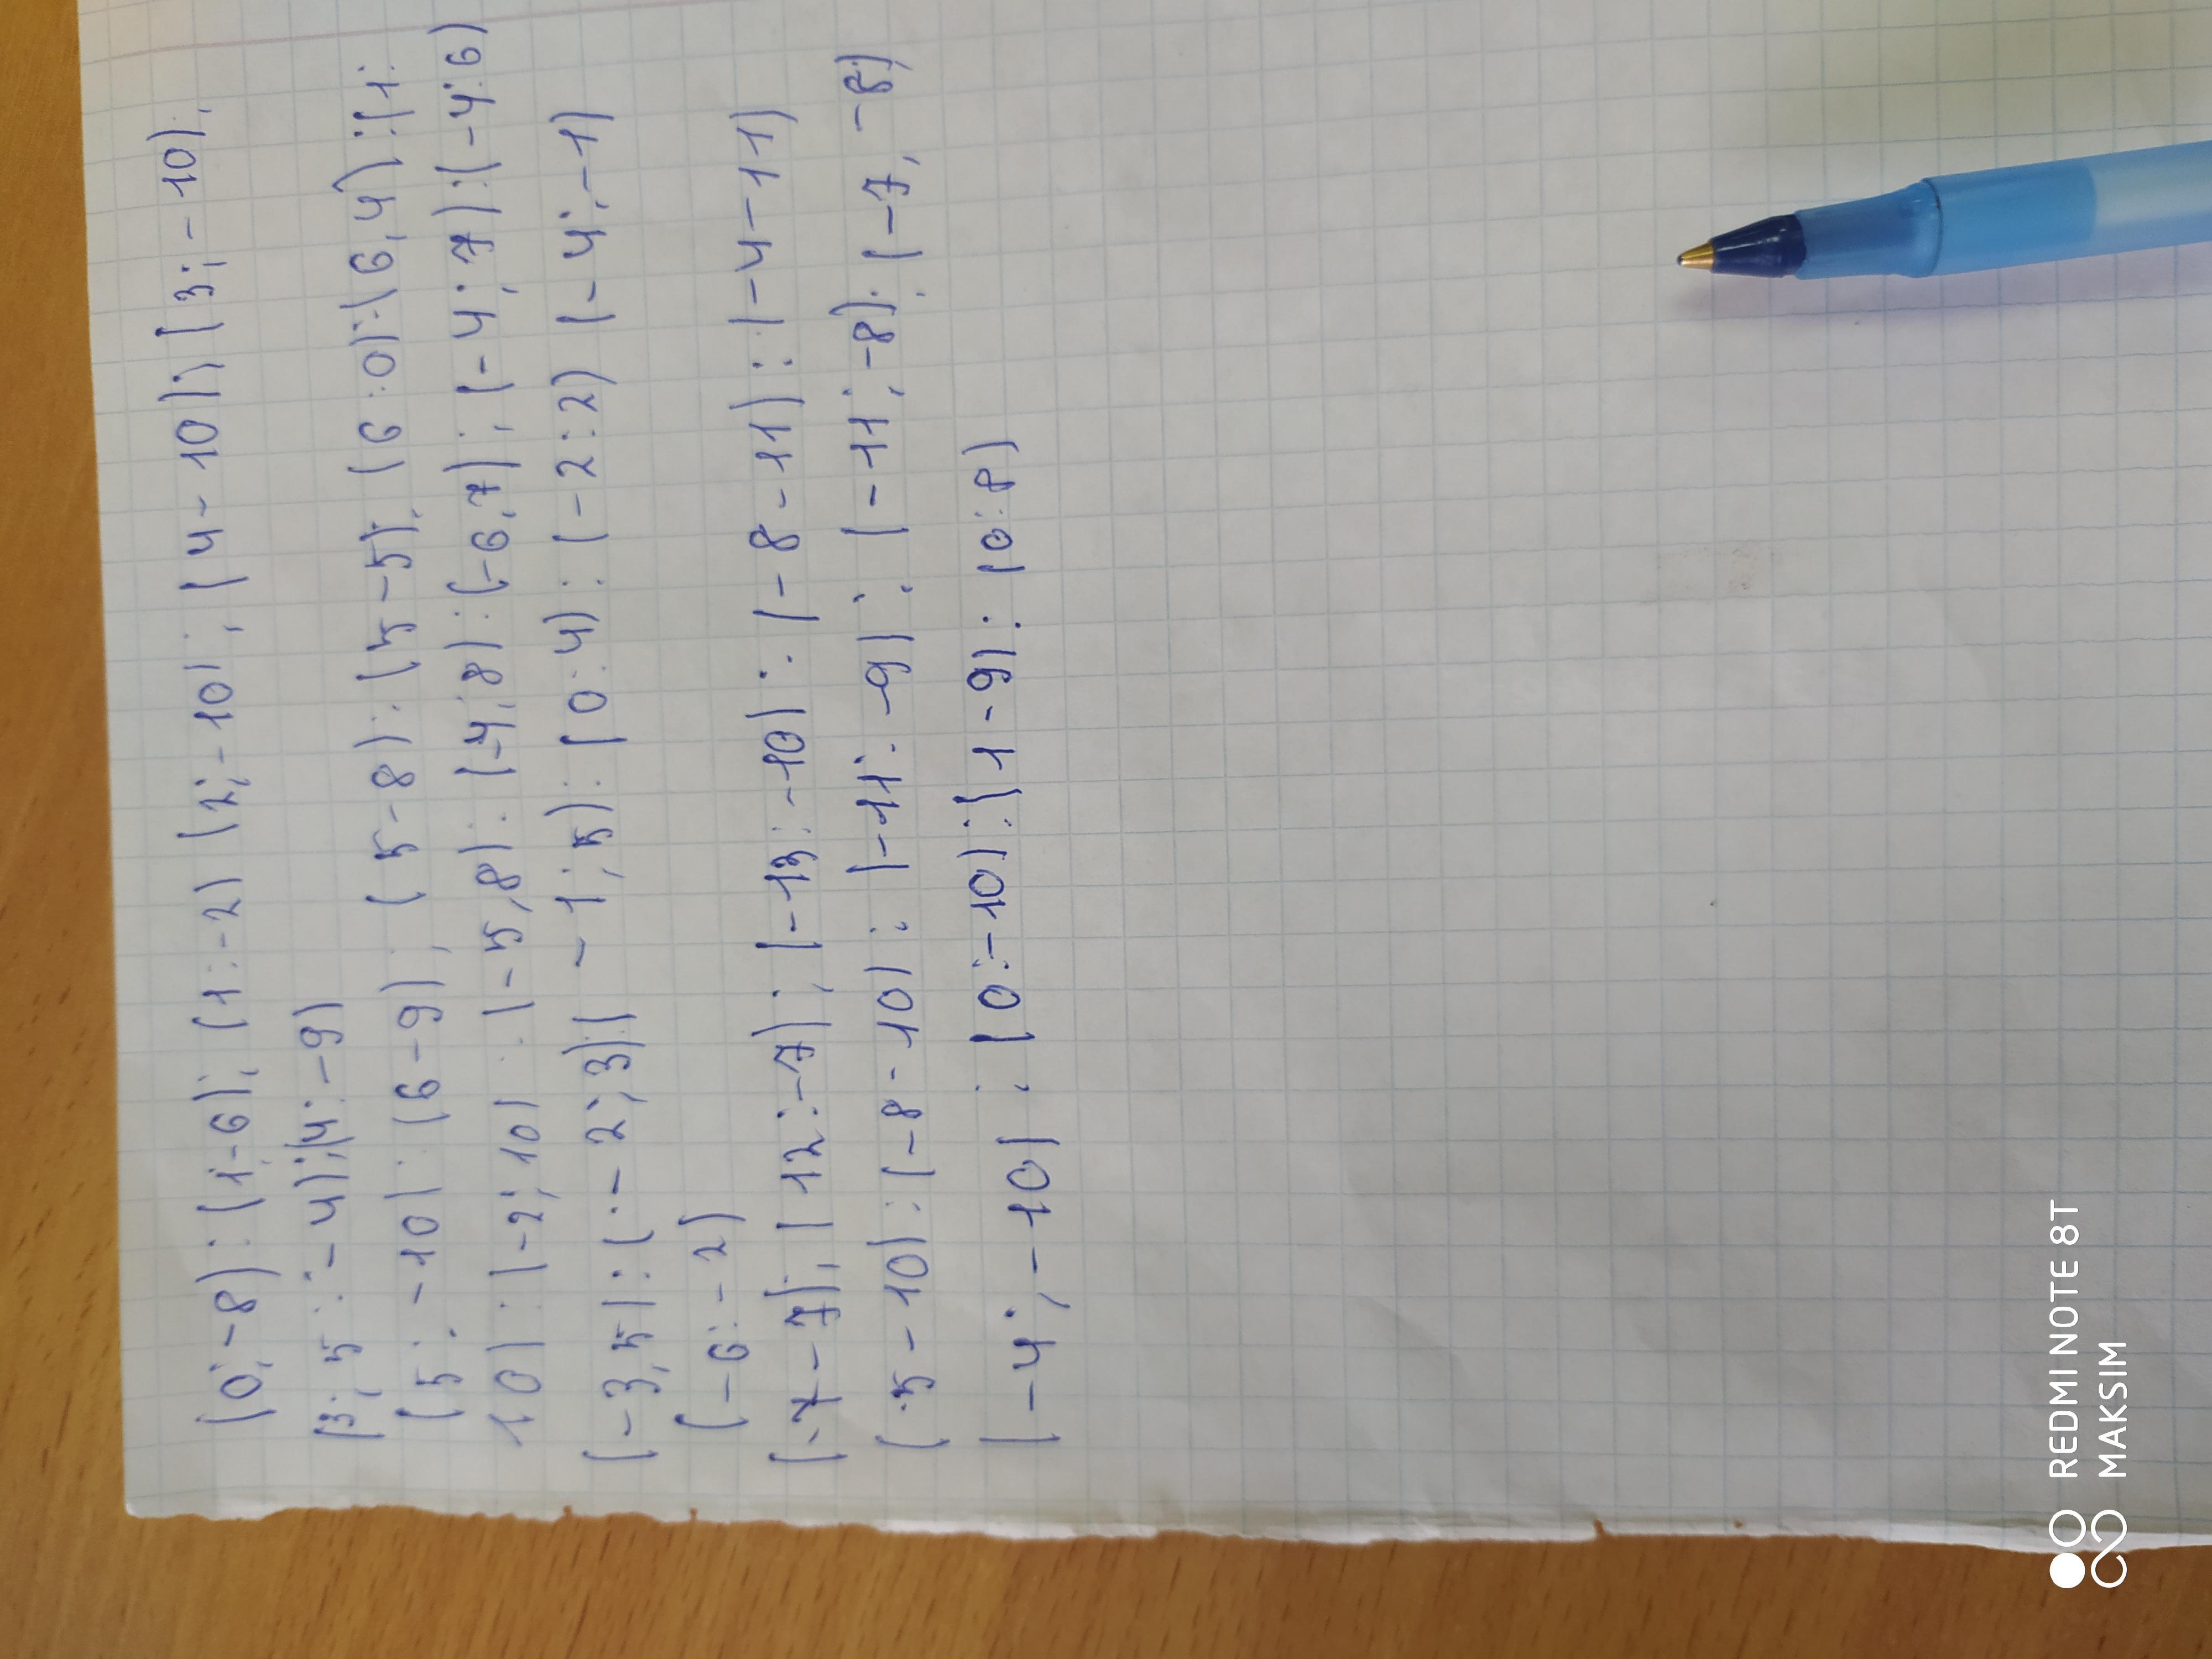 (0;-8) : (1-6); (1:-2) (2;-10) ; (4-10) ; (3;-10);
(3; 5 :-4) ; (4:-9)
(5 ; -10) : (6-9) ; (5-8) : (5-5); (6:0) : (6,4) : (1:
10) : (-2; 10) : (-5,8) : (-4;8) : (-6,7) ; (-4;7) : (-4:6)
(-3,5) : (:-2;3) : (-1;5) : (0:4) : (-2:2) (-4;-1)
(-6:-2)
(-7-7); (12:-7) ; (-13:-10) : (-8-11) : (-4-11)
(:5-10) : (-8-10) : (-11:-9) ; (-11;-8) : (-7,-8)
(-4;-10) : (0:-10) : (1-9) : (0:8)
REDMI NOTE 8T
MAKSIM